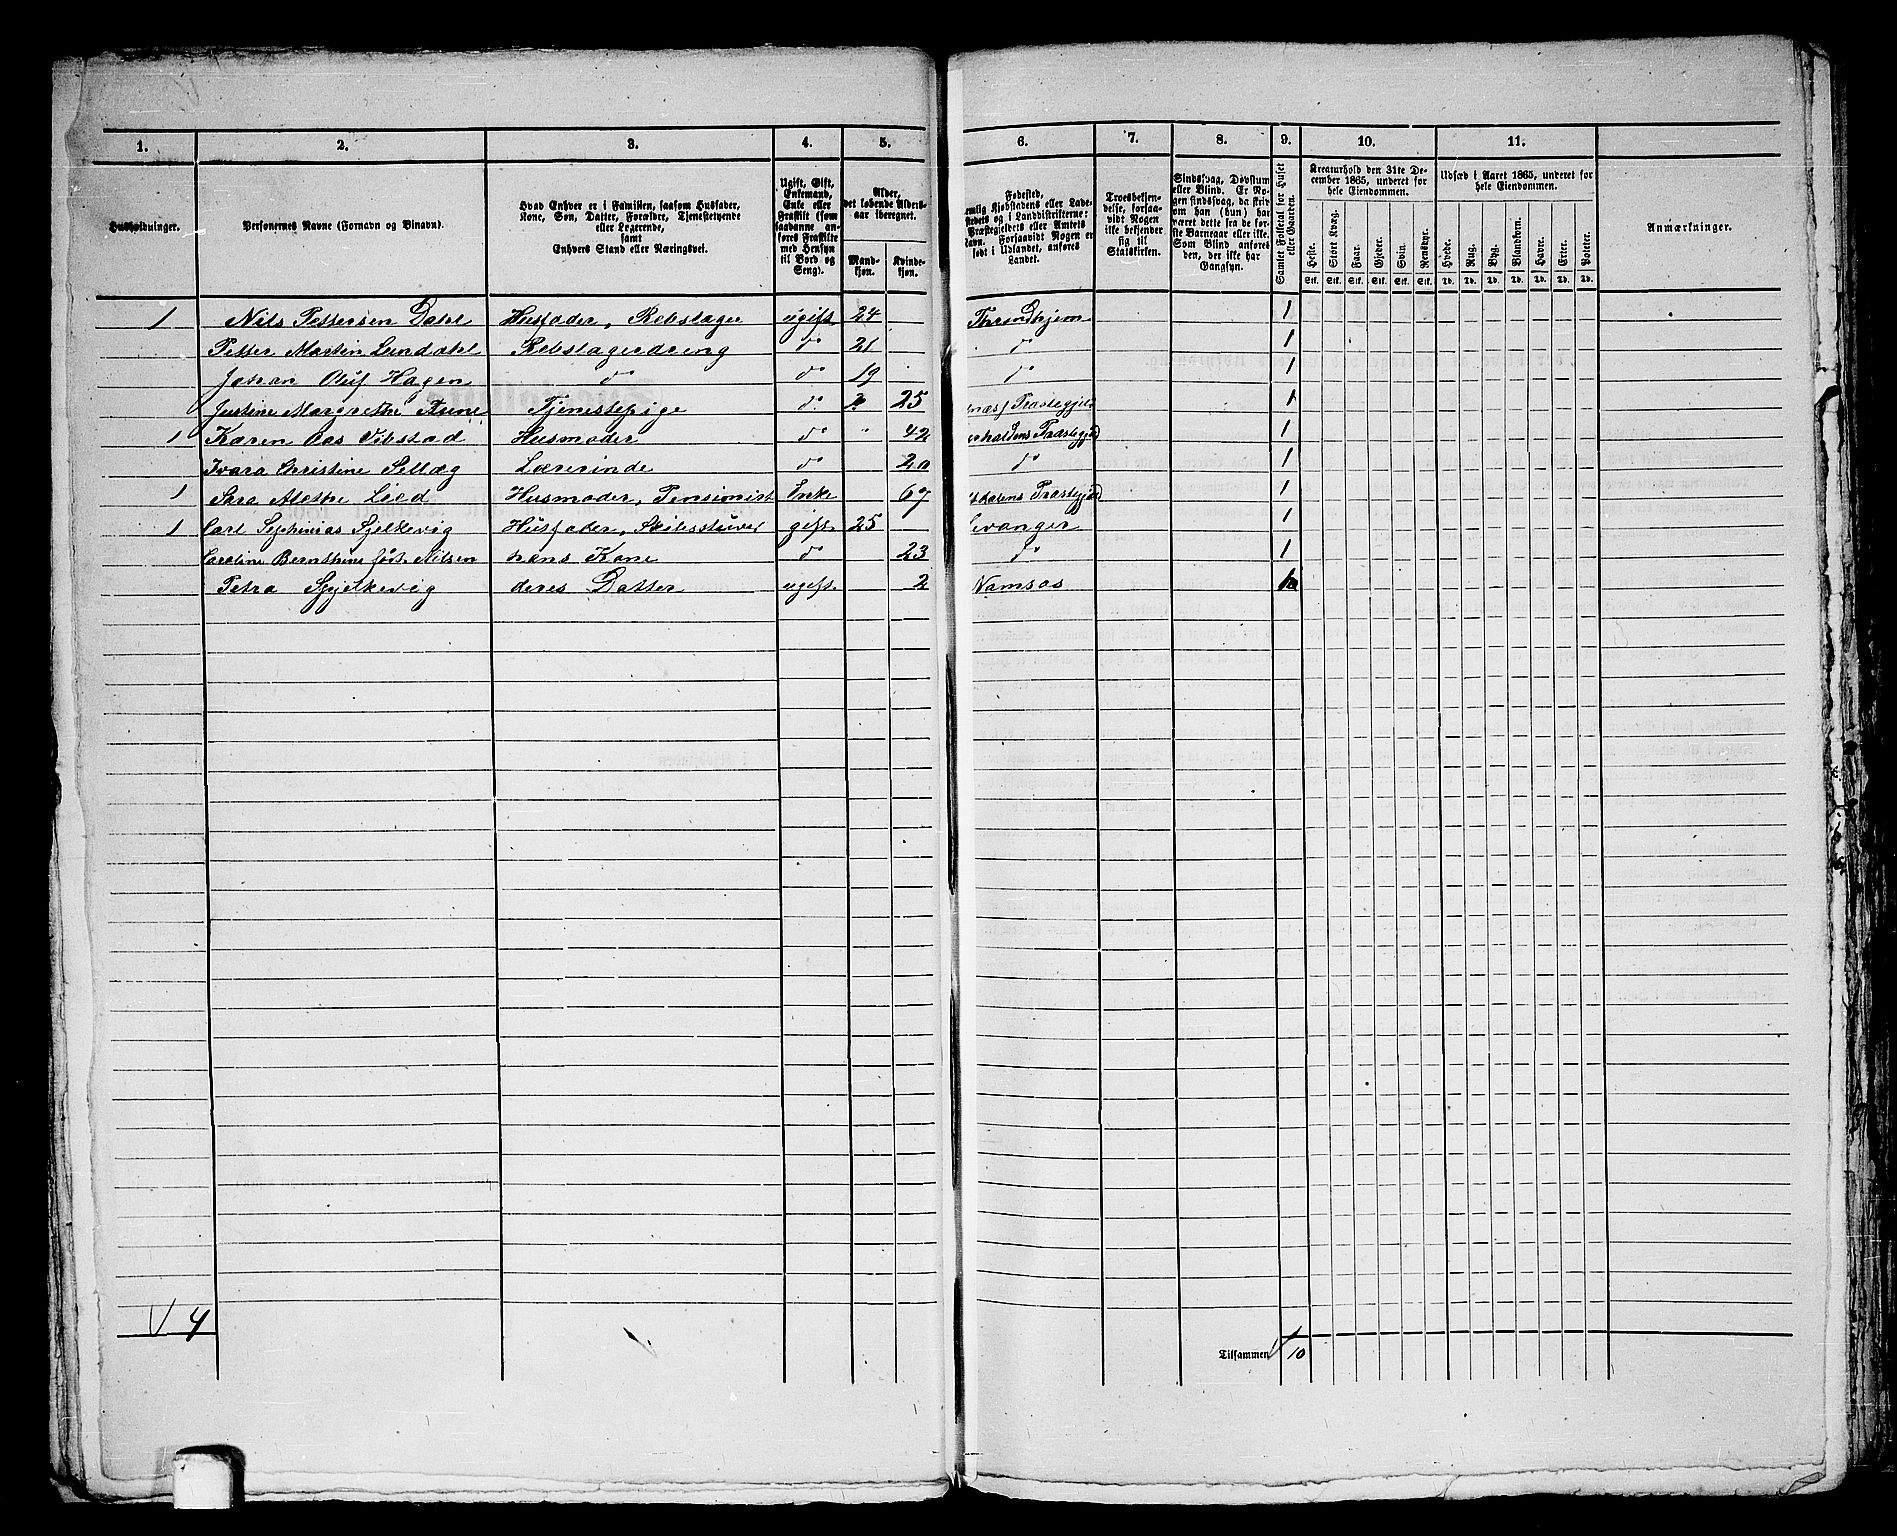 1. 2. 3. 4. 5. 6. 7. 8. 9. 10. 11.
Husholdninger.
Personernes Navne (Fornavn og Binavn).
Hvad Enhver er i Familien, saasom Husfader,
Kone, Søn, Datter, Forældre, Tjenestetyende
eller Logerende,
samt
Enhvers Stand eller Næringsvei.
Ugift, Gift,
Enkemand,
Enke eller
Fraskilt (som
saadanne an-
føres Fraskilte
med Hensyn
til Bord og
Seng).
Alder,
det løbende Alders-
aar iberegnet.
Mand-
kjøn.
Kvinde-
kjøn.
Fødested,
nemlig Kjøbstedens eller Lade-
stedets og i Landdistrikterne:
Præstegjeldets eller Amtets
Navn. Forsaavidt Nogen er
født i Udlandet, anføres
Landet.
Troesbekjen-
delse, forsaa-
vidt Nogen
ikke bekjender
sig til
Statskirken.
Sindssvag, Døvstum
eller Blind. Er No-
gen sindssvag, da skriv
om han (hun) har
været dette fra de før-
ste Barneaar eller ikke.
Som Blind anføres
den, der ikke har
Gangsyn.
Samlet Folketal for Huset
eller Gaarden.
Kreaturhold den 31te De-
cember 1865, underet for
hele Eiendommen.
Heste. Stort Kvæg. Faar. Gjeder. Svin. Rensdyr.
Stk. Stk. Stk. Stk. Stk. Stk.
Udsæd i Aaret 1865, underet for
hele Eiendommen.
Hvede. Rug. Byg. Blandkorn. Havre. Erter. Poteter.
Td. Td. Td. Td. Td. Td. Td.
Anmærkninger.
1 Nils Pettersen Dahl Husfader, Rebslager ugift 24 Throndhjem 1
Petter Martin Lundahl Rebslagerdreng do 21 do 1
Johan Oluf Hagen do do 19 do 1
Justine Margrethe Aune Tjenestepige do. 25 næs Præstegjeld 1
1 Karen Aas Vibstad Husmoder do " 42 erhaldens Præstegjeld 1
Ivara Christine Sellæg Lærerinde do 20 do 1
1 Sara Alethe Lied Husmoder, Pensionist Enke 67 dalens Præstegjeld 1
1 Carl Sephanias Sjelkvig Husfader, Skibsstuver gift 25 Levanger 1
Caroline Bernthine født Nilsen hans Kone do 23 do 1
Petra Sjelkevig deres Datter ugift 2 Namsos
4
Tilsammen 10